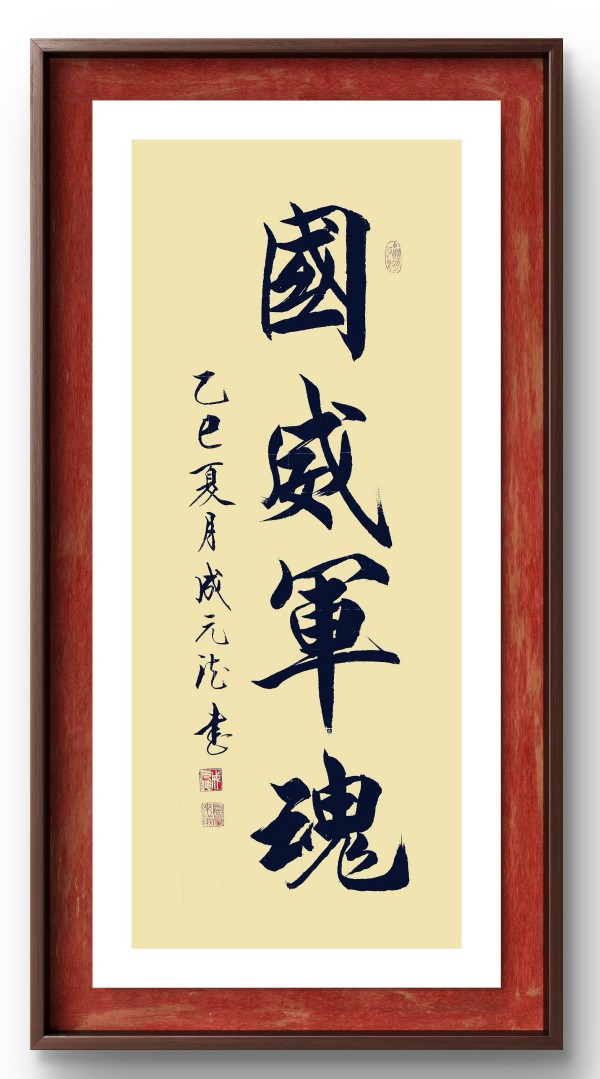 國威軍魂
乙巳夏月成元法書